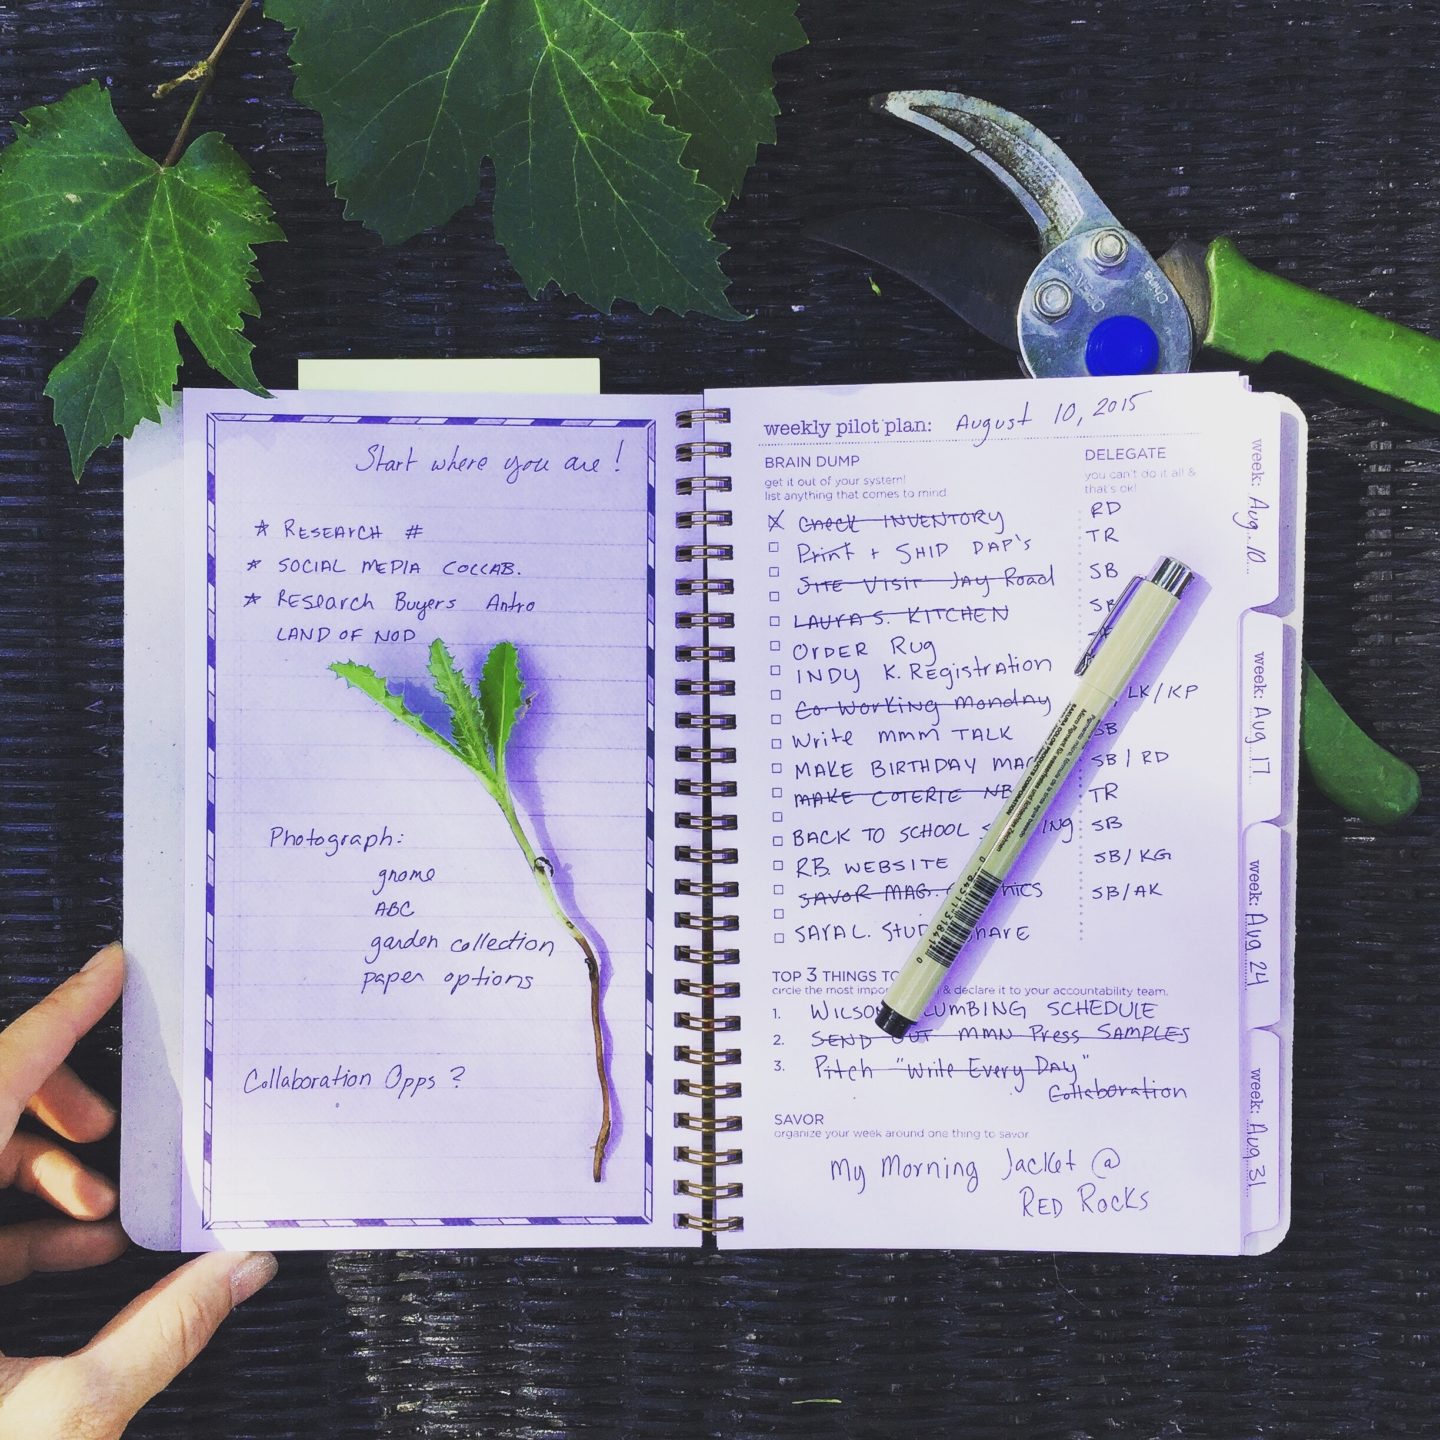 Start where you are!
* RESEARCH #
* SOCIAL MEDIA COLLAB.
* RESEARCH Buyers Antro
LAND OF NOD
Photograph:
gnome
ABC
garden collection
paper options
Collaboration Opps?
weekly pilot plan: August 10, 2015
BRAIN DUMP
get it out of your system!
list anything that comes to mind.
DELEGATE
you can't do it all &
that's ok!
Check INVENTORY RD
Print + SHIP DAP'S TR
SITE VISIT Jay Road SB
LAURA S. KITCHEN
ORDER Rug
INDY K. Registration
Co-Working Monday LK/KP
Write mmm TALK SB
MAKE BIRTHDAY SB/RD
MAKE COTERIE NB TR
BACK TO SCHOOL SB
RB. WEBSITE SB/KG
SAVOR MAG. SB/AK
SARA L.
TOP 3 THINGS
circle the most & declare it to your accountability team.
1. SCHEDULE
2. SEND OUT MMN Press SAMPLES
3. Pitch "Write Every Day"
Collaboration
SAVOR
organize your week around one thing to savor
My Morning Jacket @
RED ROCKS
week: Aug. 10
week: Aug 17
week: Aug 24
week: Aug 31
China
SAKURA COLOR PRODUCTS CORPORATION